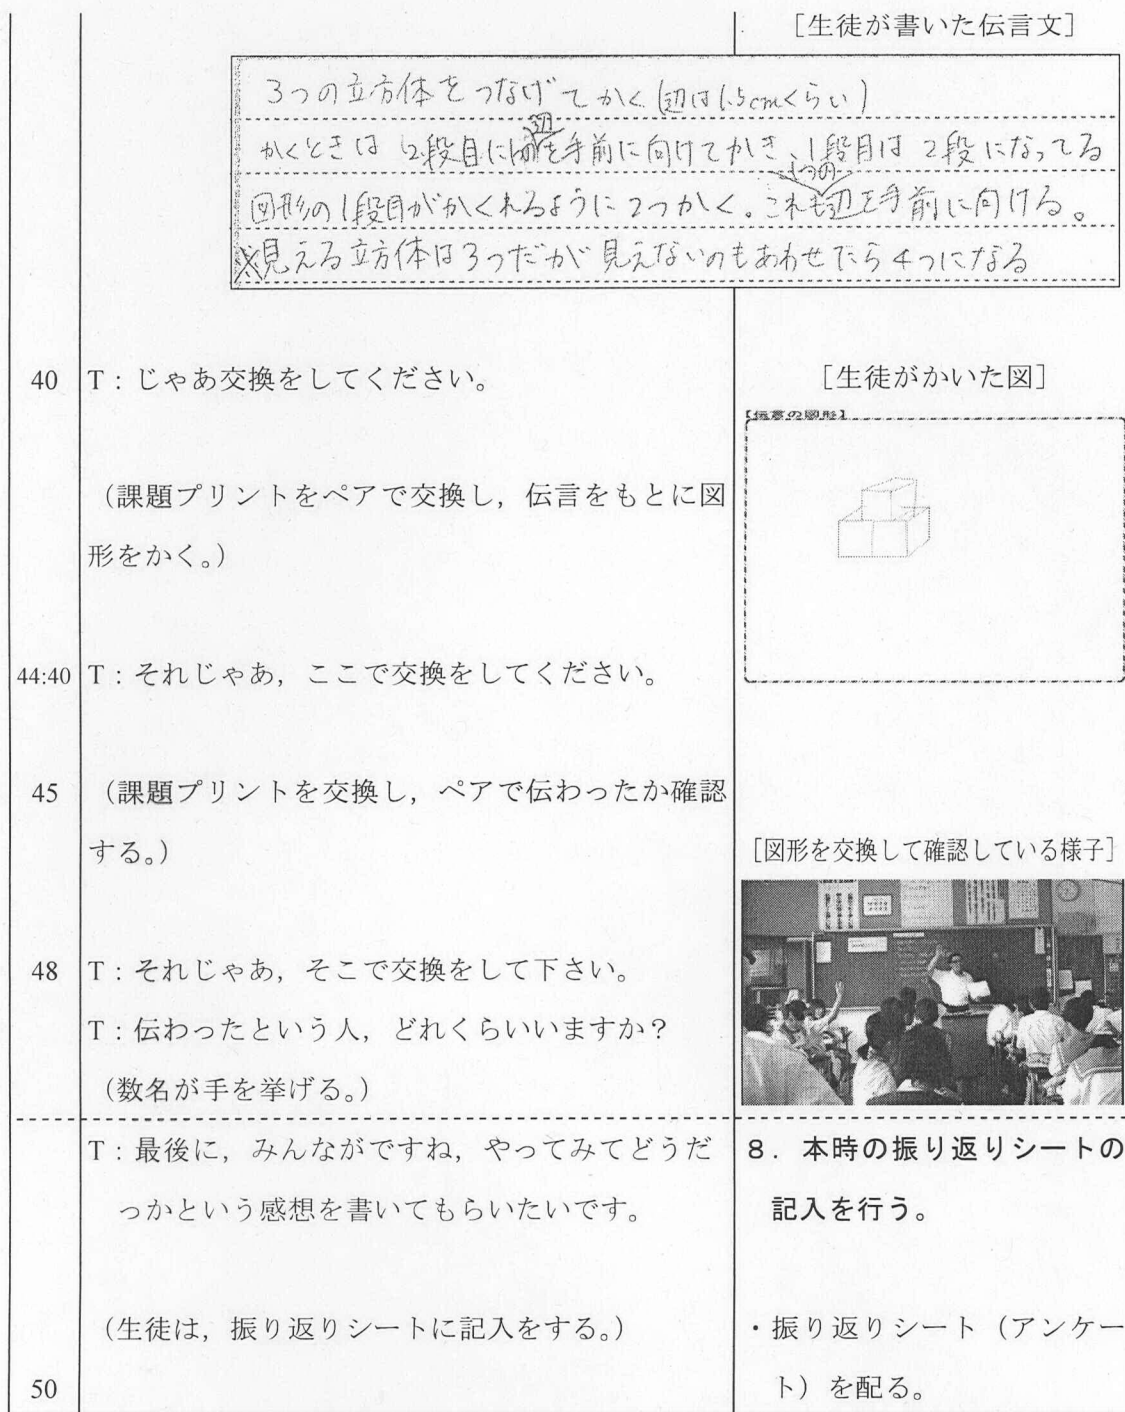 [生徒が書いた伝言文]
3つの立方体をつなげてかく(辺は1.5cmくらい)
かくときは2段目に辺を手前に向けてかき、1段目は2段になってる
図形の1段目がかくれるように2つかく。これも1つの辺を手前に向ける。
※見える立方体は3つだが見えないのもあわせたら4つになる
40 T:じゃあ交換をしてください。
[生徒がかいた図]
【伝言の図形】
(課題プリントをペアで交換し,伝言をもとに図
形をかく。)
44:40 T:それじゃあ,ここで交換をしてください。
45 (課題プリントを交換し,ペアで伝わったか確認
する。)
[図形を交換して確認している様子]
48 T:それじゃあ,そこで交換をして下さい。
T:伝わったという人,どれくらいいますか?
(数名が手を挙げる。)
T:最後に,みんながですね,やってみてどうだ
っかという感想を書いてもらいたいです。
(生徒は,振り返りシートに記入をする。)
50
8.本時の振り返りシートの
記入を行う。
・振り返りシート(アンケー
ト)を配る。